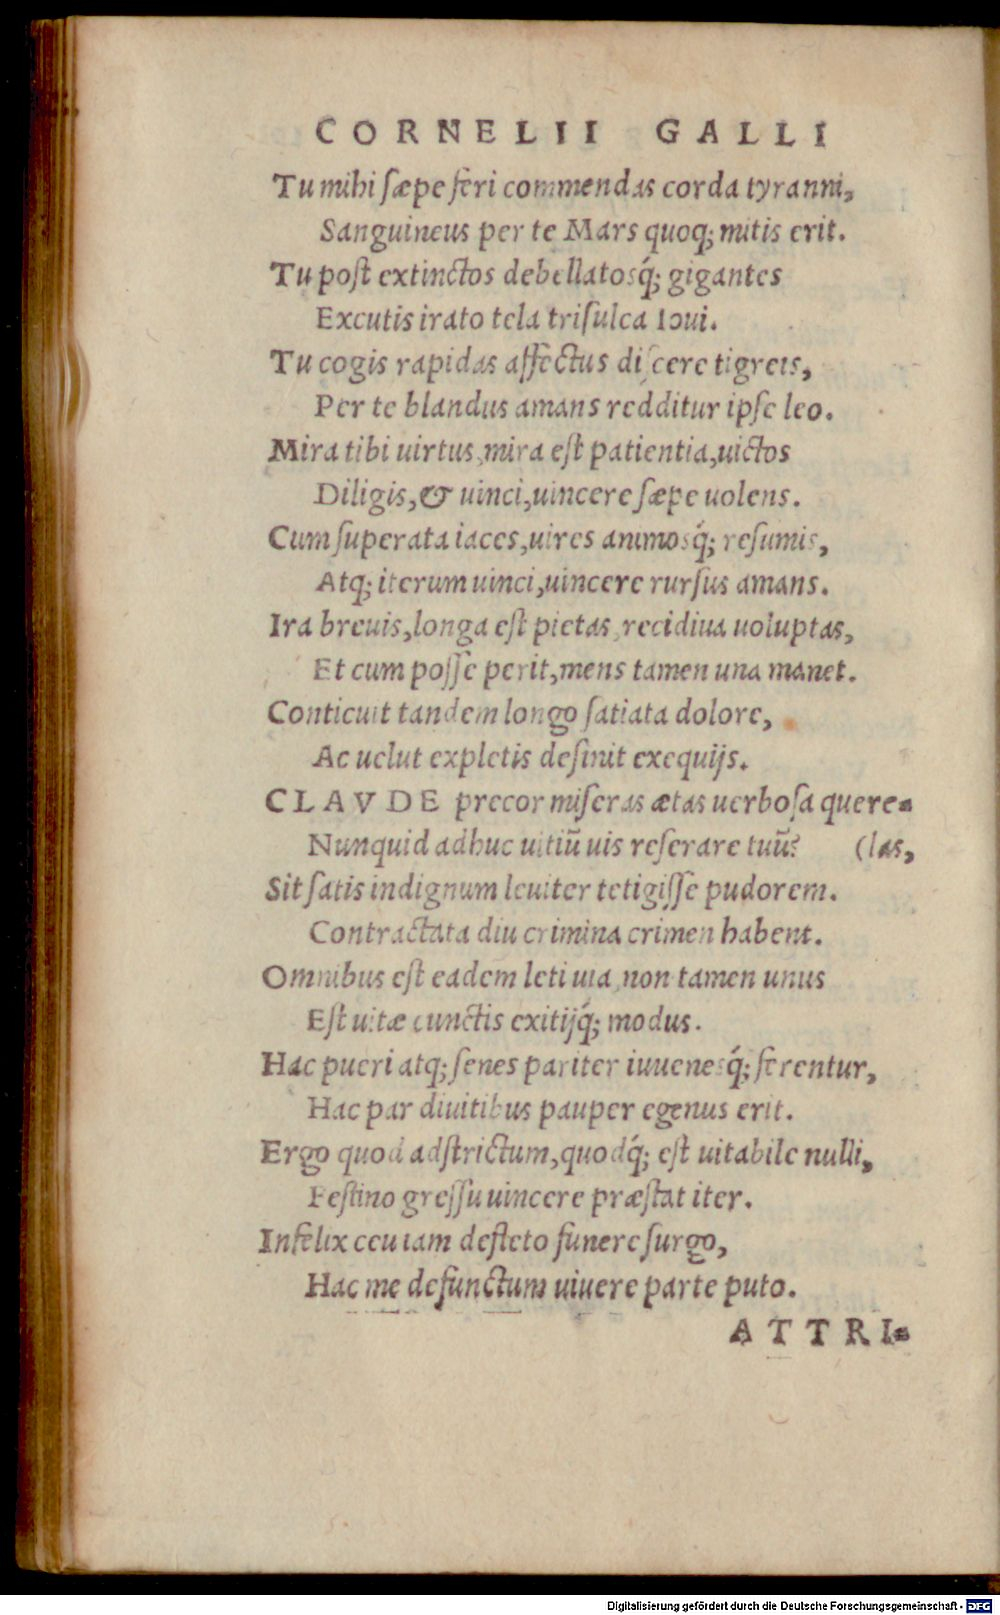 CORNELII GALLI
Tu mihi sæpe feri commendas corda tyranni,
Sanguineus per te Mars quoq; mitis erit.
Tu post extinctos debellatosq́; gigantes
Excutis irato tela trisulca Ioui.
Tu cogis rapidas affectus discere tigreis,
Per te blandus amans redditur ipse leo.
Mira tibi uirtus, mira est patientia, uictos
Diligis, & uinci, uincere sæpe uolens.
Cum superata iaces, uires animosq́; resumis,
Atq; iterum uinci, uincere rursus amans.
Ira breuis, longa est pietas, recidiua uoluptas,
Et cum posse perit, mens tamen una manet.
Conticuit tandem longo satiata dolore,
Ac uelut expletis desinit exequijs.
CLAVDE precor miseras ætas uerbosa quere-
Nunquid adhuc uitiū uis reserare tuū? (las,
Sit satis indignum leuiter tetigisse pudorem.
Contractata diu crimina crimen habent.
Omnibus est eadem leti uia, non tamen unus
Est uitæ cunctis exitijq́; modus.
Hac pueri atq; senes pariter iuuenesq́; ferentur,
Hac par diuitibus pauper egenus erit.
Ergo quod adstrictum, quodq́; est uitabile nulli,
Festino gressu uincere præstat iter.
Infelix ceu iam defleto funere surgo,
Hac me defunctum uiuere parte puto.
ATTRI-
Digitalisierung gefördert durch die Deutsche Forschungsgemeinschaft - DFG